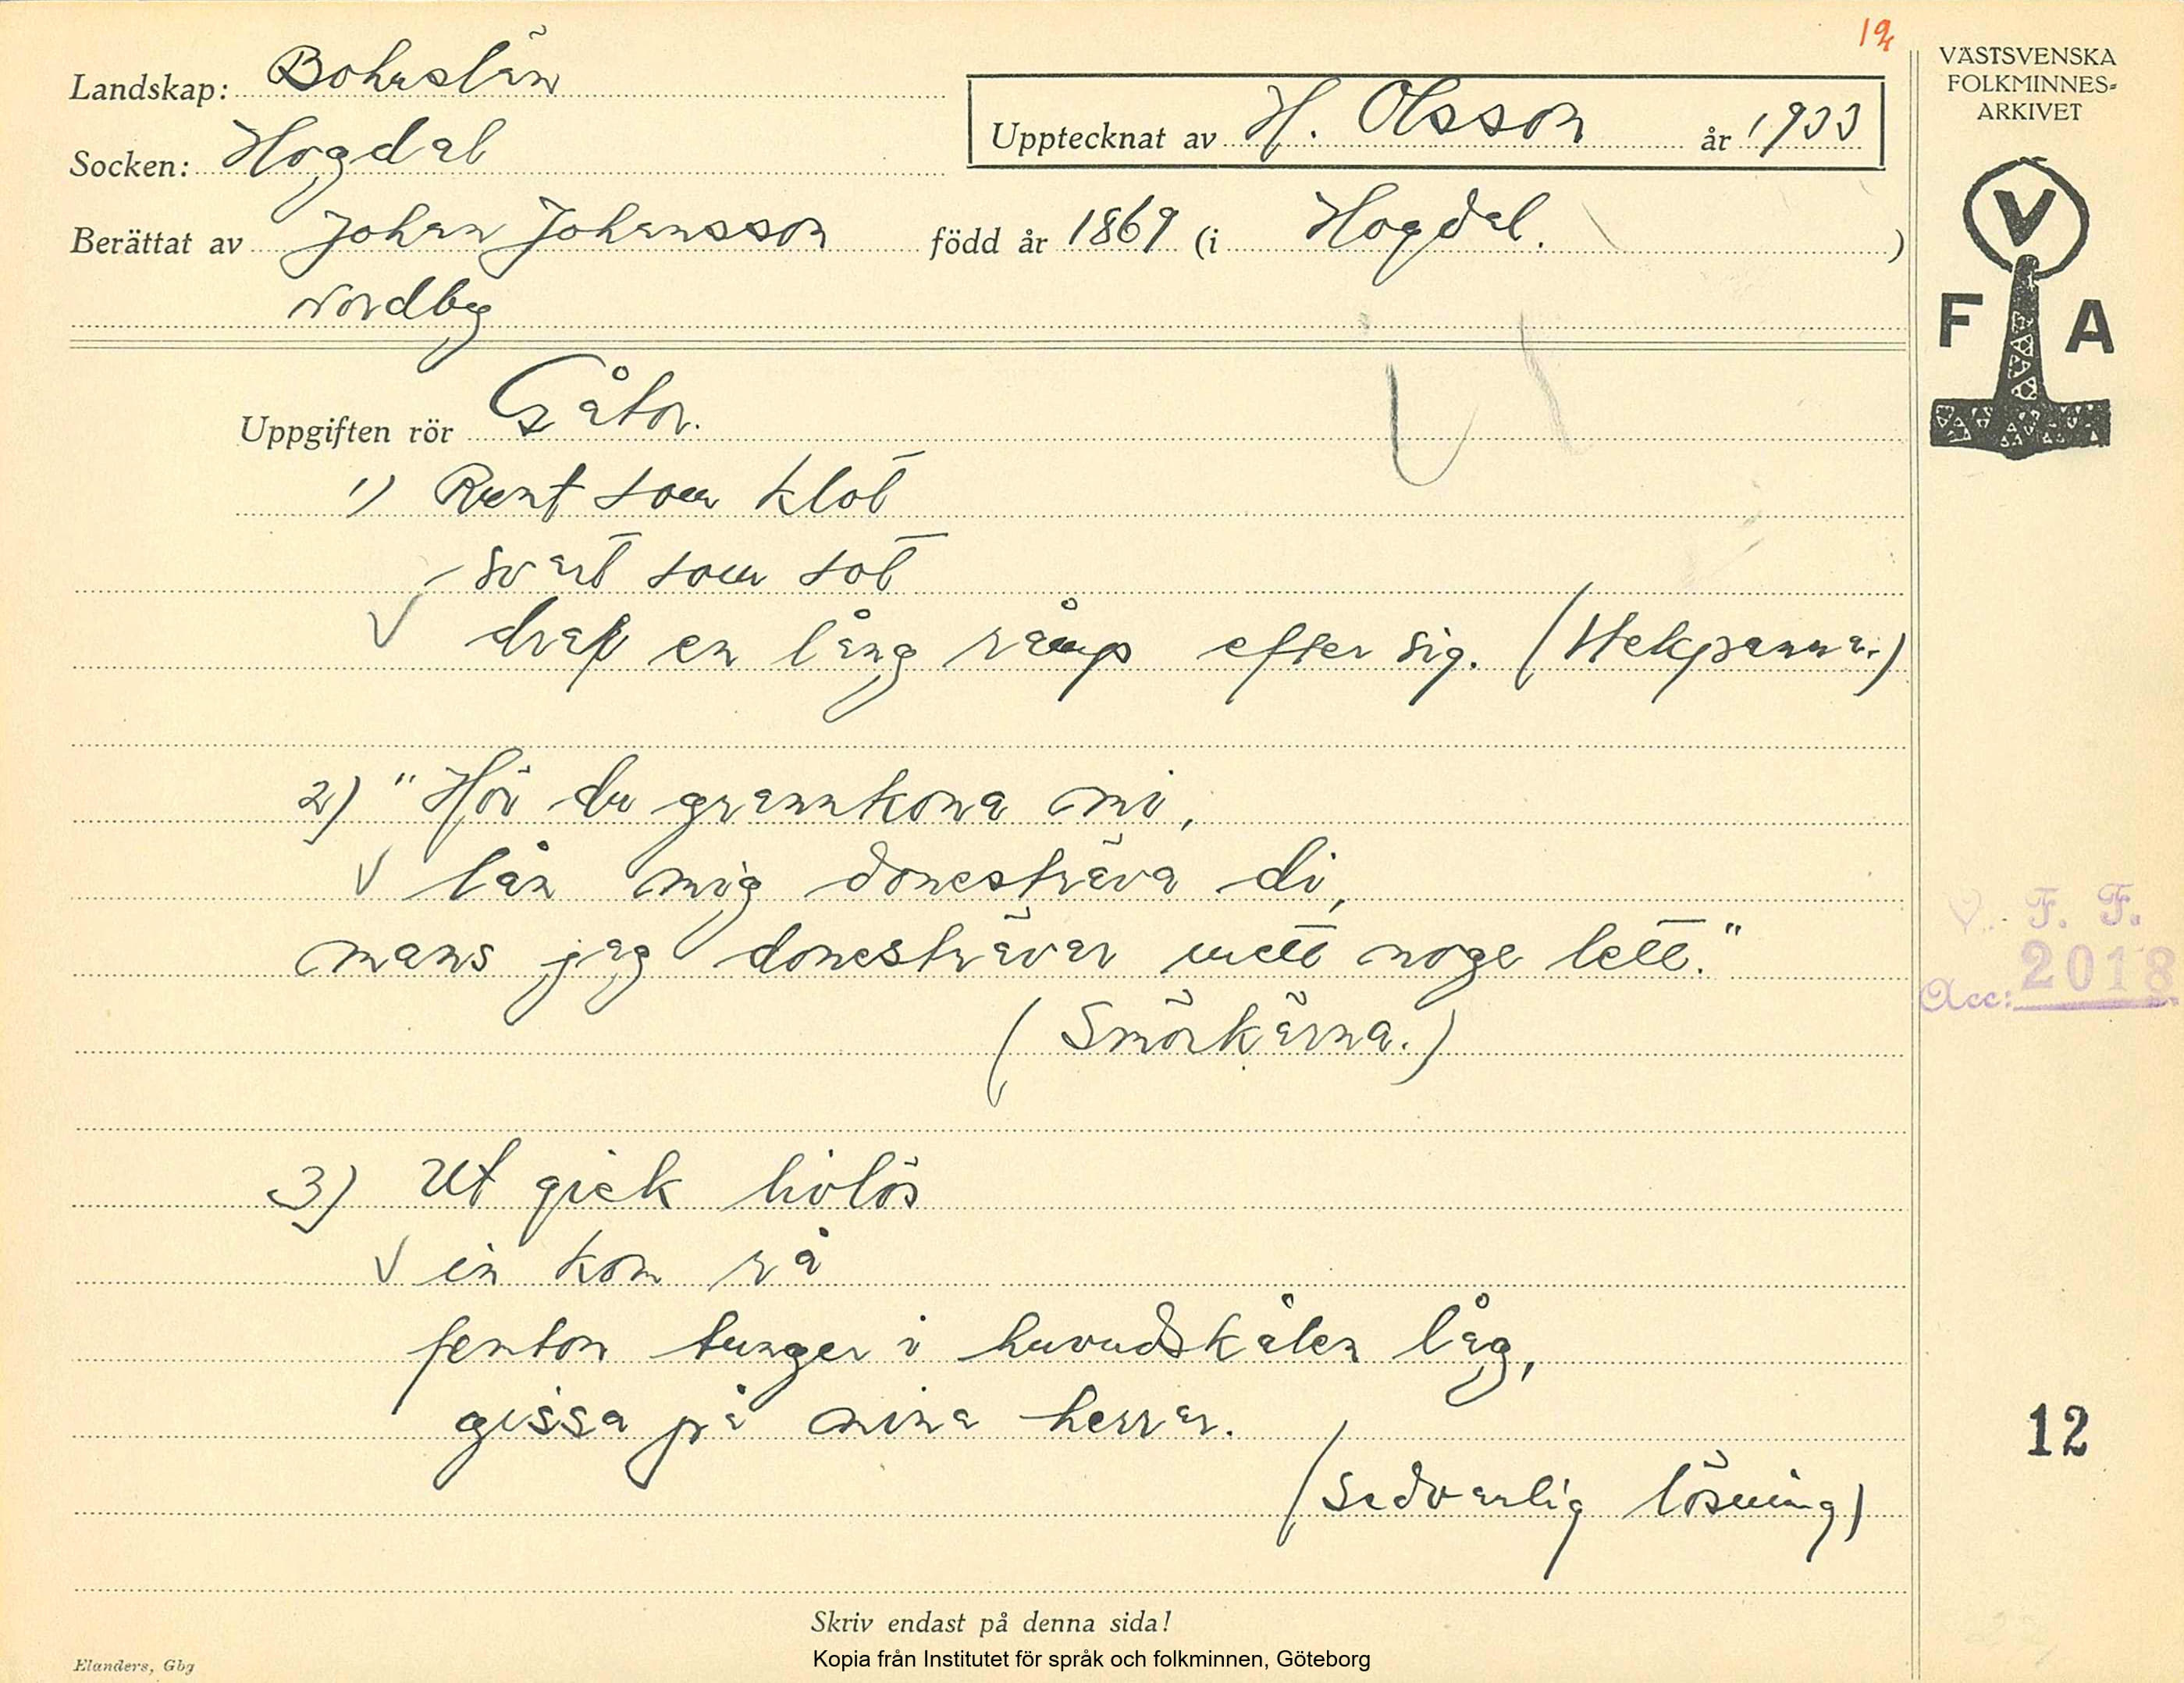 12
Landskap: Bohuslän
Socken: Hogdal
Upptecknat av H. Olsson år 1933
Berättat av Johan Johansson född år 1869 (i Hogdal. )
Nordby
VÄSTSVENSKA
FOLKMINNES-
ARKIVET
V
F A
Uppgiften rör Gåtor.
1) Runt som klot
svart som sot
drar en lång råmp efter sig. (Stekpanna.)
2) "Hör du grannkona mi,
lån mig donesträva di,
mans jag donesträvar mett noge lett."
(Smörkärna.)
3) Ut gick livlös
in kom rå
femton tunger i huvudskålen låg,
gissa på mina herrar.
(Sedvanlig lösning)
V. F. F.
Acc: 2018
12
Skriv endast på denna sida!
Kopia från Institutet för språk och folkminnen, Göteborg
Elanders, Gbg